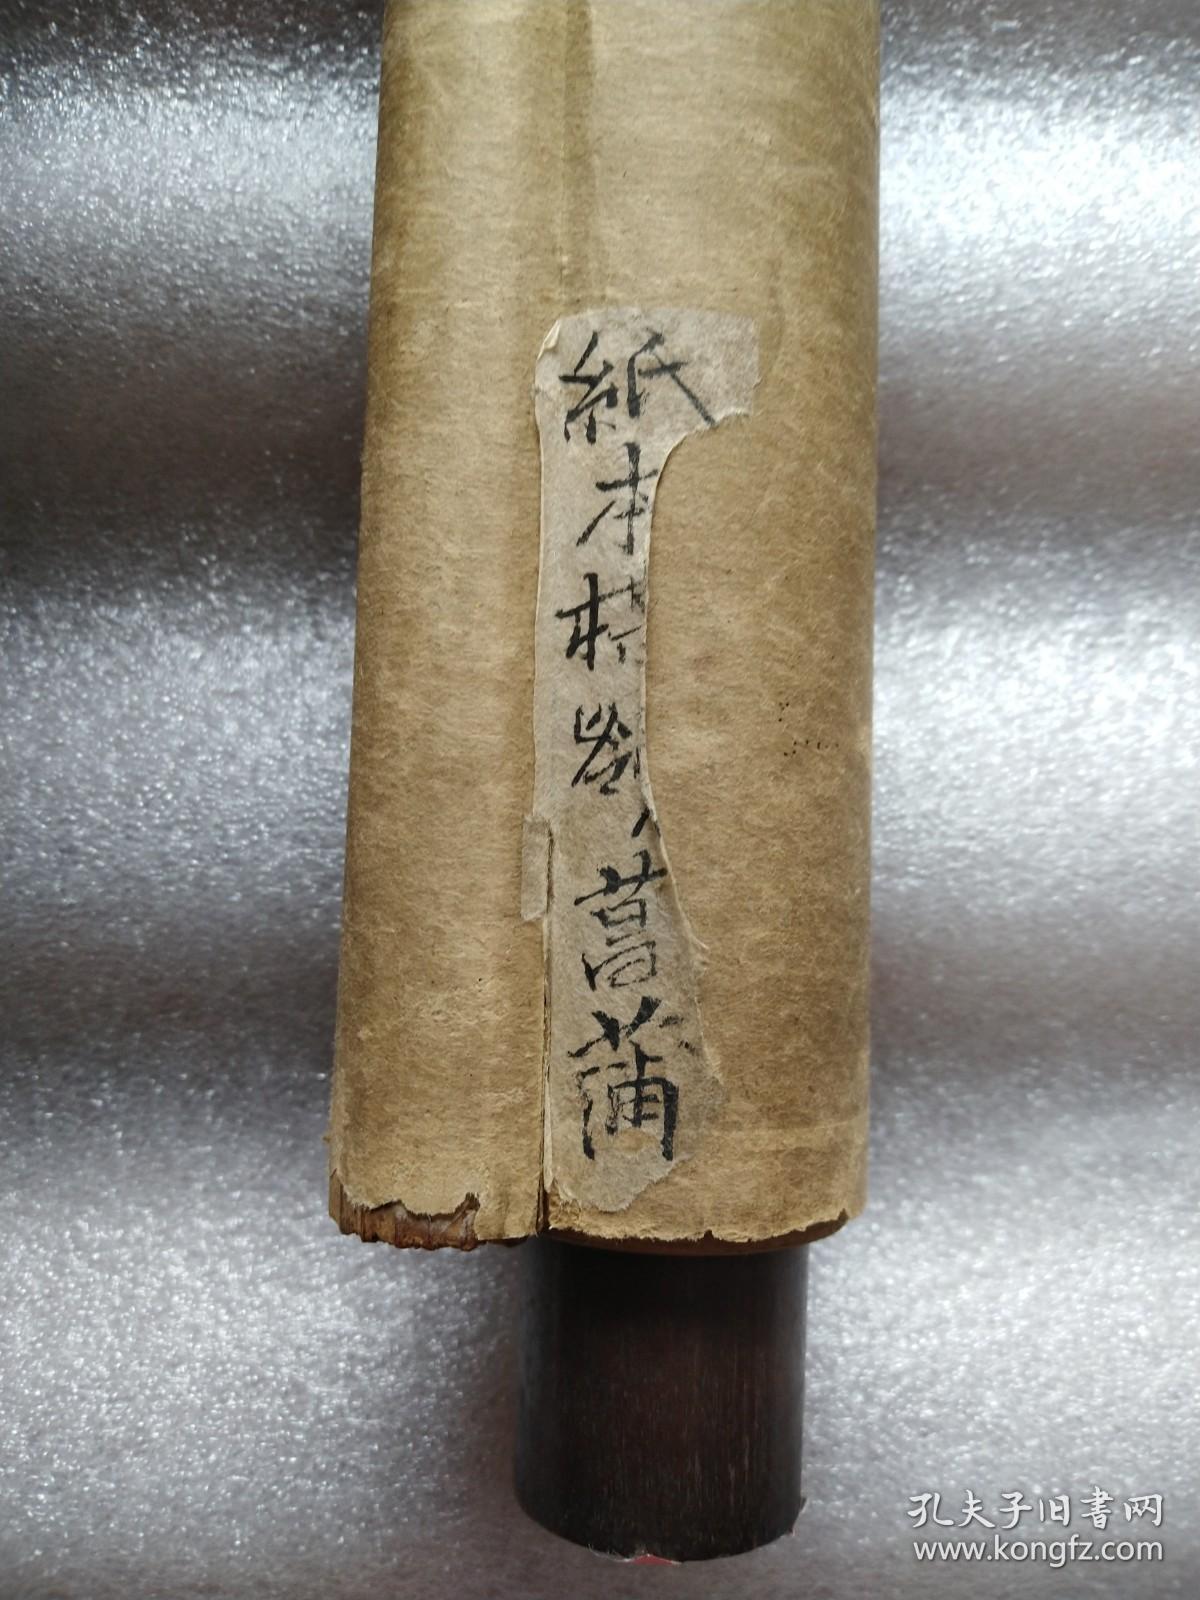 紙本横
菖蒲
孔夫子旧書网
www.kongfz.com